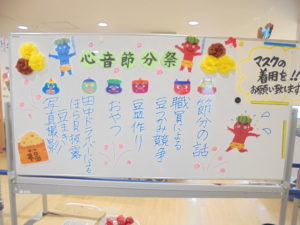 心音節分祭
マスクの
着用を!!
お願い致します
節分の話
職員による
豆つみ競争
豆皿作り
おやつ
ほら貝披露
豆まき
写真撮影
福